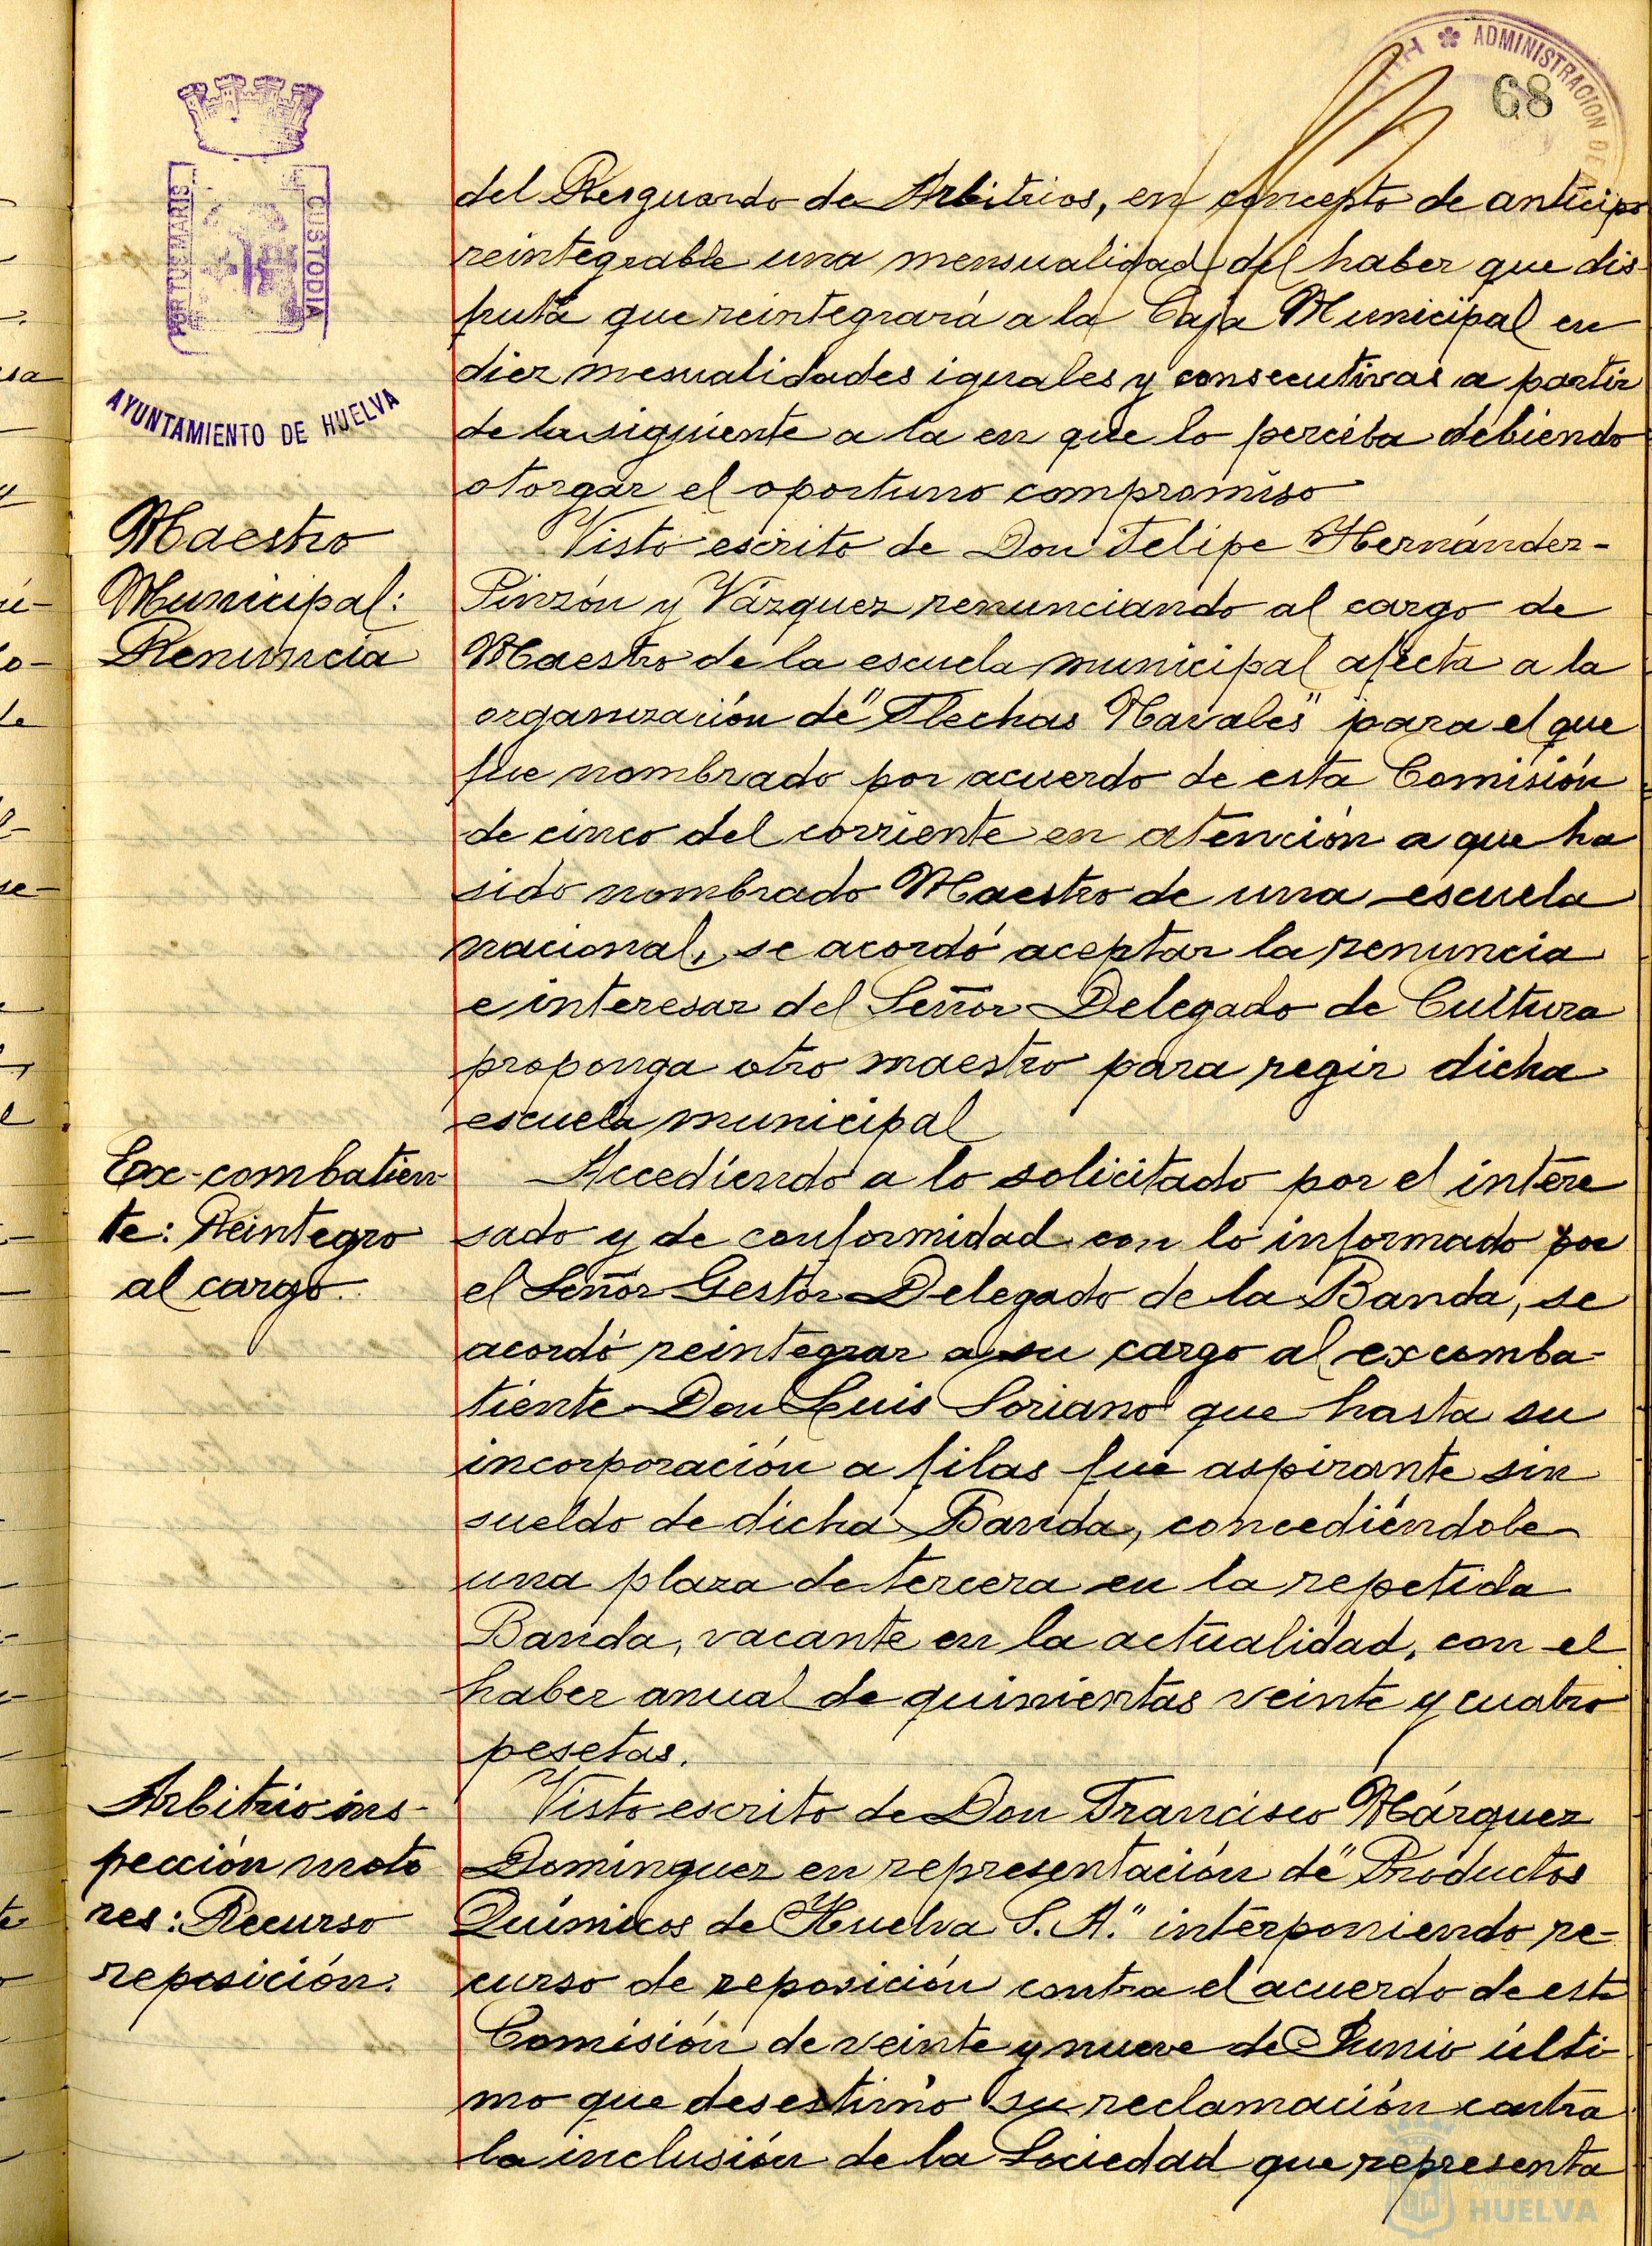 ADMINISTRACION DE
68
PORTUS MARIS
CUSTODIA
AYUNTAMIENTO DE HUELVA
del Resguardo de Arbitrios, en concepto de anticipo
reintegrable una mensualidad del haber que dis-
fruta que reintegrará a la Caja Municipal en
diez mesualidades iguales y consecutivas a partir
de la siguiente a la en que lo perciba debiendo
otorgar el oportuno compromiso
Maestro
Municipal:
Renuncia
Visto escrito de Don Felipe Hernández-
Pinzón y Vázquez renunciando al cargo de
Maestro de la escuela municipal afecta a la
organización de "Flechas Navales" para el que
fue nombrado por acuerdo de esta Comisión
de cinco del corriente en atención a que ha
sido nombrado Maestro de una escuela
nacional, se acordó aceptar la renuncia
e interesar del Señor Delegado de Cultura
proponga otro maestro para regir dicha
escuela municipal
Ex-combatien-
te: Reintegro
al cargo.
Accediendo a lo solicitado por el intere
sado y de conformidad con lo informado por
el Señor Gestor Delegado de la Banda, se
acordó reintegrar a su cargo al excomba-
tiente Don Luis Soriano que hasta su
incorporación a filas fué aspirante sin
sueldo de dicha Banda, concediéndole
una plaza de tercera en la repetida
Banda, vacante en la actualidad, con el
haber anual de quinientas veinte y cuatro
pesetas.
Arbitrio ins-
pección moto
res: Recurso
reposición.
Visto escrito de Don Francisco Márquez
Dominguez en representación de "Productos
Químicos de Huelva S. A." interponiendo re-
curso de reposición contra el acuerdo de esta
Comisión de veinte y nueve de Junio últi-
mo que desestimó su reclamación contra
la inclusión de la Sociedad que representa
Ayuntamiento de
HUELVA